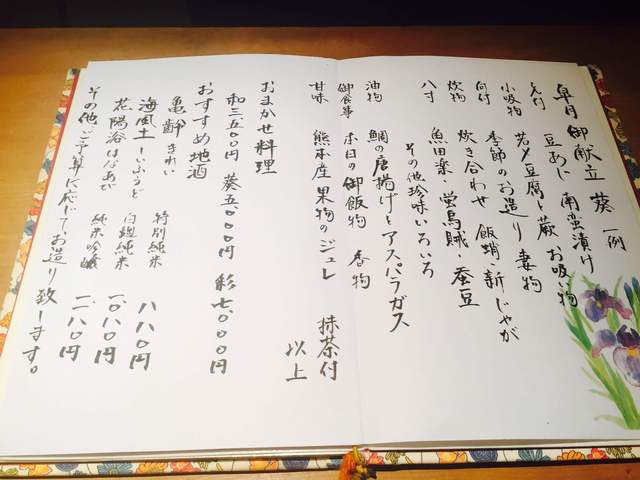 皐月 御献立 葵 一例
先付 豆あじ 南蛮漬け
小吸物 若〆豆腐と蕨 お吸い物
向付 季節のお造り 妻物
炊物 炊き合わせ 飯蛸・新じゃが
八寸 魚田楽・蛍烏賊・蚕豆
その他珍味いろいろ
油物 鯛の唐揚げとアスパラガス
御食事 本日の御飯物 香物
甘味 熊本産果物のジュレ 抹茶付
以上
おまかせ料理
和三、五〇〇円 葵五、〇〇〇円 彩七、〇〇〇円
おすすめ地酒
亀齢 きれい 特別純米 八八〇円
海風土 しいふうど 白麹純米 一、〇八〇円
花陽浴 はなあび 純米吟醸 一、二八〇円
その他、ご予算に応じてお造り致します。